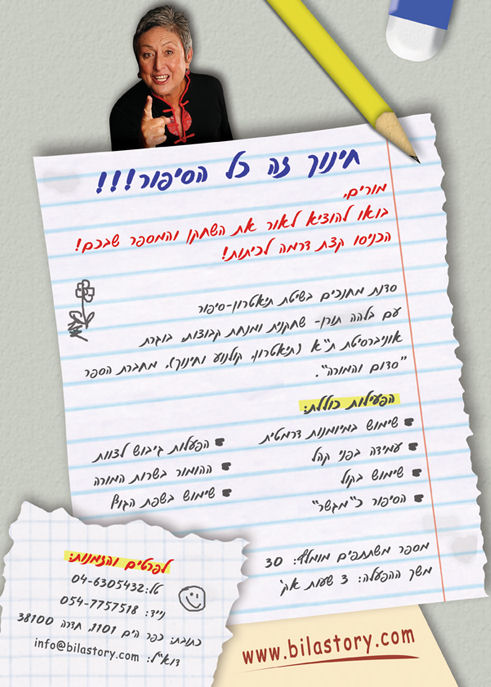 חינוך זה כל הסיפור!!!
מורים,
בואו להוציא לאור את השחקן והמספר שבכם!
הכניסו קצת דרמה לכיתות!
סדנת מחנכים בשיטת תיאטרון-סיפור
עם בלהה תורן- שחקנית ומנחת קבוצות, בוגרת
אוניברסיטת ת"א (תיאטרון, קולנוע וחינוך), מחברת הספר
"סדום והמורה".
הפעילות כוללת:
שימוש במיומנות דרמטית
עמידה בפני קהל
שימוש בקול
הסיפור כ"מגשר"
הפעלות גיבוש לצוות
ההומור בשרות המורה
שימוש בשפת הגוף
מספר משתתפים מומלץ: 30
משך ההפעלה: 3 שעות אק'
לפרטים והזמנות:
טל: 04-6305432
נייד: 054-7757518
כתובת: כפר הים 1101, חדרה 38100
דוא"ל: info@bilastory.com
www.bilastory.com